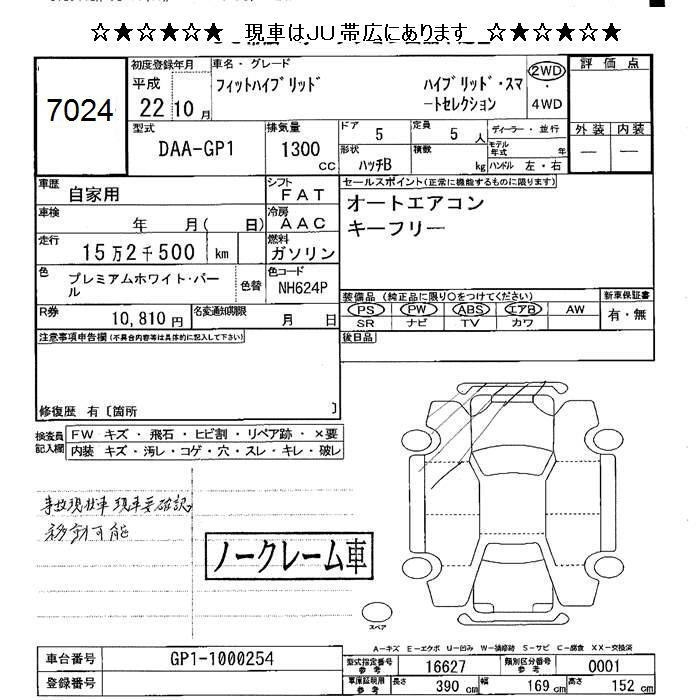 ☆★☆★☆★ 現車はJU帯広にあります ☆★☆★☆★
7024
初度登録年月
平成
22 10 月
車名・グレード
フィットハイブリッド
ハイブリッド・スマートセレクション
2WD
・
4WD
評価点
外装 内装
— —
型式
DAA-GP1
排気量
1300 cc
ドア 5
定員 5 人
形状 ハッチB
積数 kg
ディーラー・並行
モデル年式 年
ハンドル 左・右
車歴 自家用
シフト FAT
車検 年 月( 日)
冷房 AAC
走行 15万2千500 km
燃料 ガソリン
色 プレミアムホワイト・パール
色替
色コード NH624P
R券 10,810円
名変通知期限 月 日
セールスポイント(正常に機能するものに限ります)
オートエアコン
キーフリー
装備品 (純正品に限り○をつけてください)
PS PW ABS エアB AW
SR ナビ TV カワ
新車保証書
有・無
後日品
注意事項申告欄(不具合内容等は具体的に記入して下さい)
修復歴 有〔箇所 〕
検査員記入欄
FW キズ・飛石・ヒビ割・リペア跡・×要
内装 キズ・汚レ・コゲ・穴・スレ・キレ・破レ
事故現状車 現車要確認
移動可能
ノークレーム車
スペア
A-キズ E-エクボ U-凹み W-補修跡 S-サビ C-腐食 XX-交換済
車台番号 GP1-1000254
登録番号
型式指定番号 参考 16627
類別区分番号 参考 0001
車庫証明用 参考 長さ 390 cm 幅 169 cm 高さ 152 cm